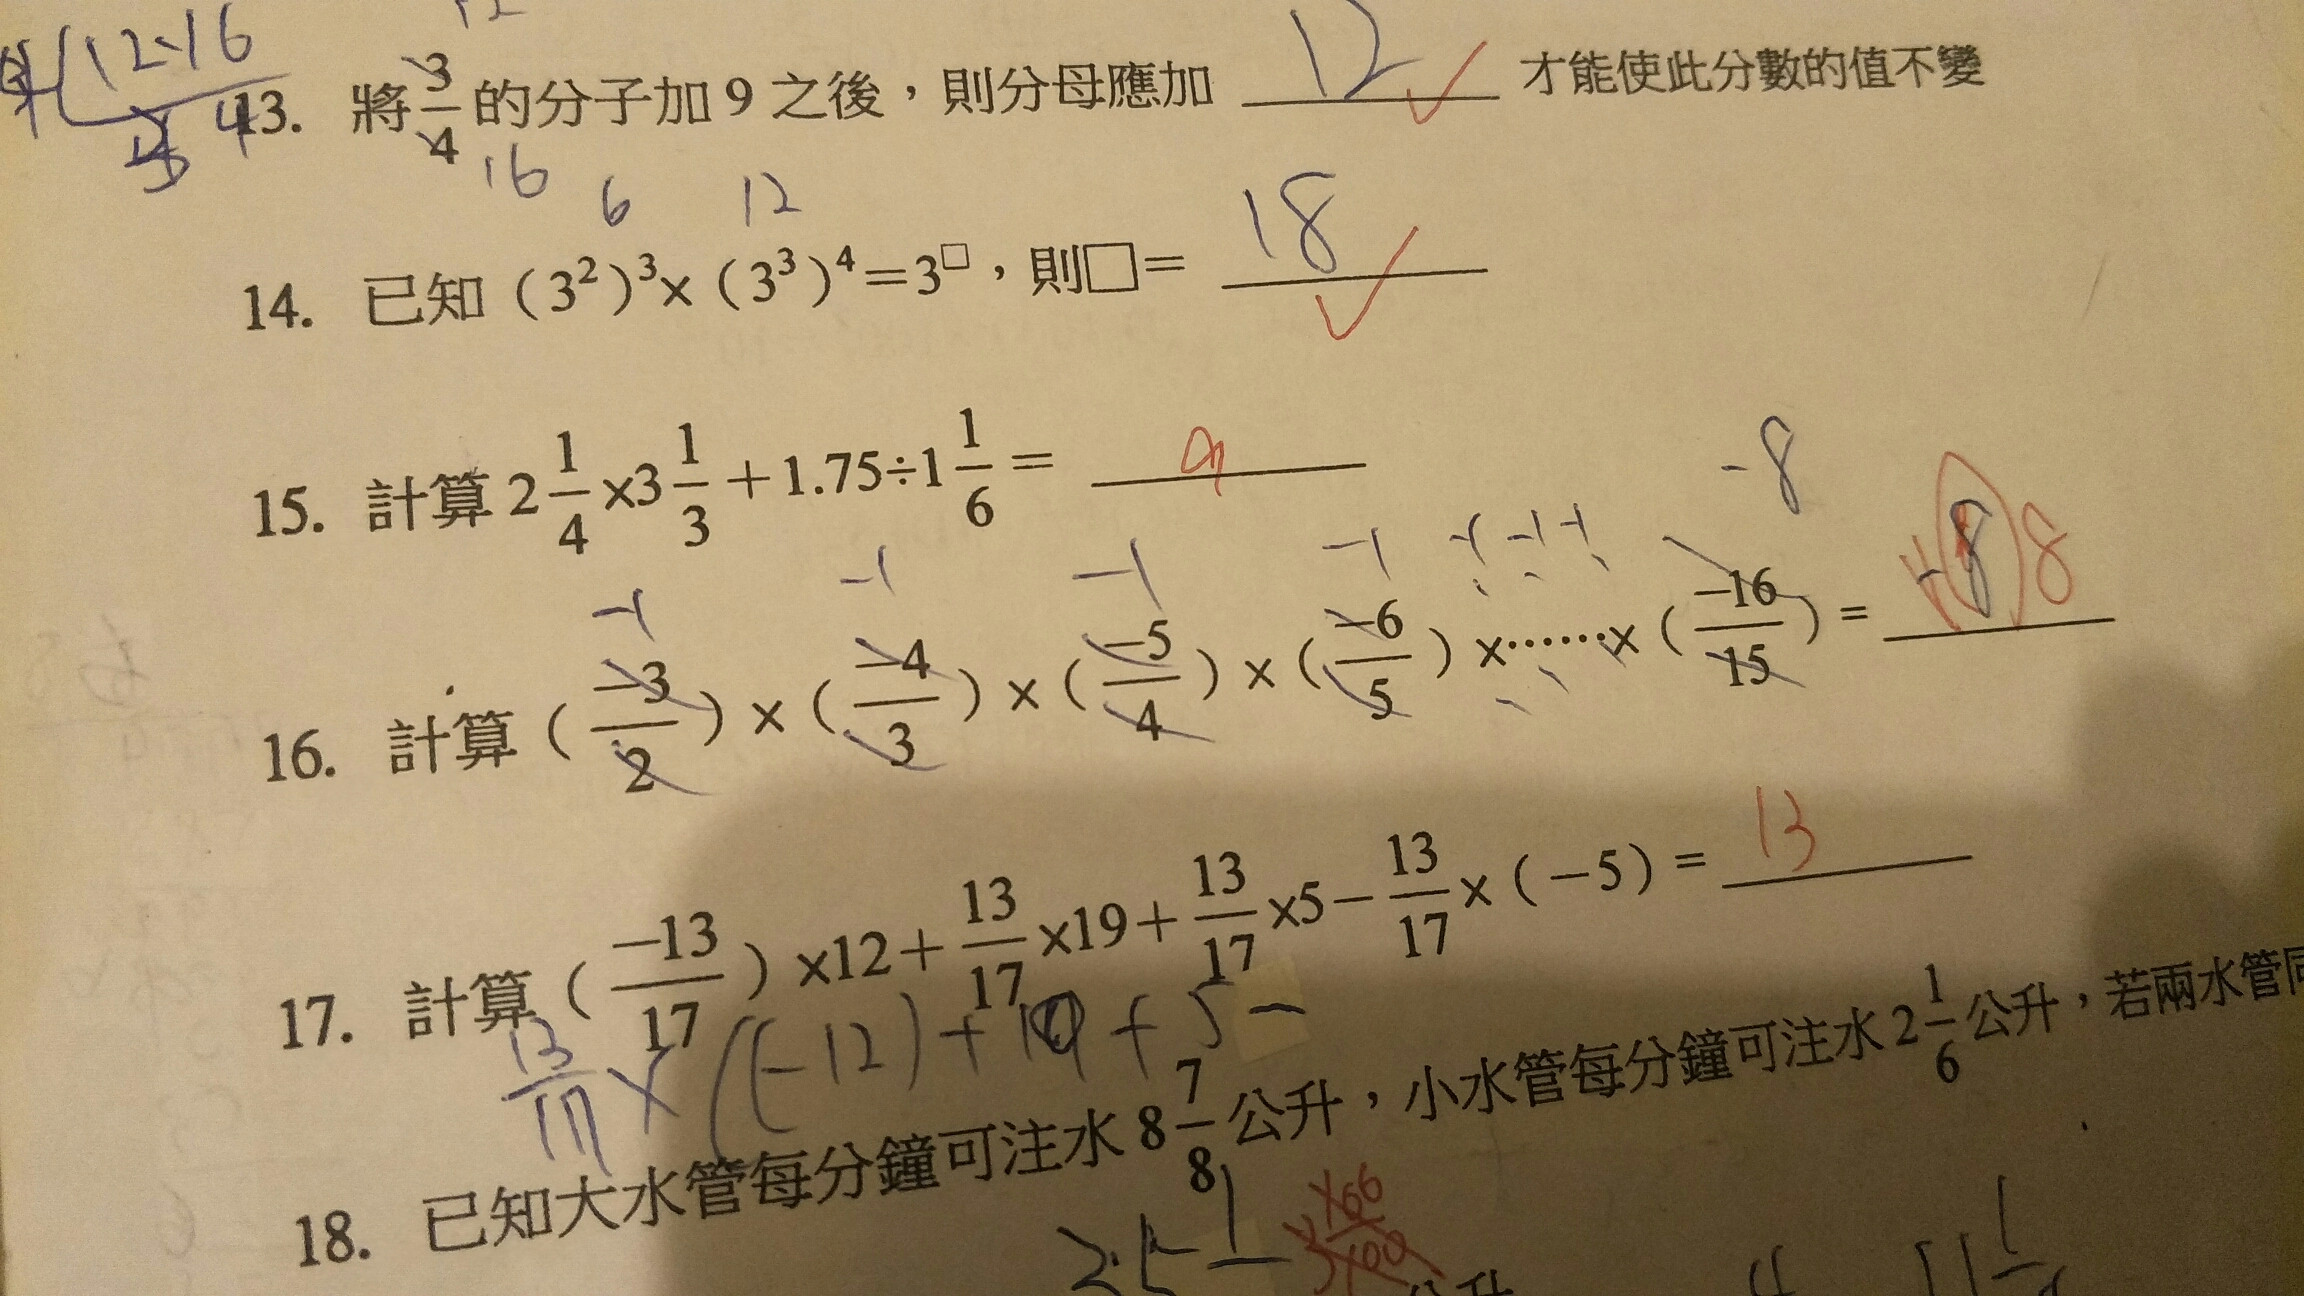 12 16
4
13. 將 3/4 的分子加 9 之後，則分母應加 12 才能使此分數的值不變
16
6 12
14. 已知 (3²)³×(3³)⁴=3^□，則□= 18
15. 計算 2 1/4 ×3 1/3 +1.75÷1 1/6 =
-8
-1 -1 -1 -1 -1 -1 -1
16. 計算 (-3/2)×(-4/3)×(-5/4)×(-6/5)×……×(-16/15)= -8 8
17. 計算 (-13/17)×12+13/17×19+13/17×5-13/17×(-5)= 13
13/17 × ((-12)+19+5-
18. 已知大水管每分鐘可注水 8 7/8 公升，小水管每分鐘可注水 2 1/6 公升，若兩水管同
公升